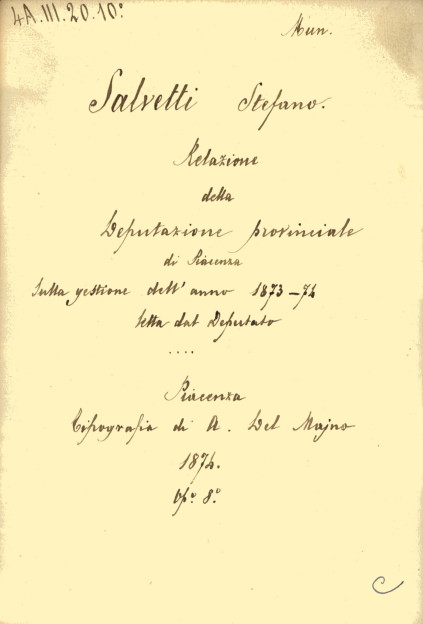 4A.III.20.10°
Mun.
Salvetti Stefano.
Relazione
della
Deputazione provinciale
di Piacenza
sulla gestione dell'anno 1873-74
letta dal Deputato
....
Piacenza
Tipografia di A. Del Majno
1874.
Op.° 8.°
C